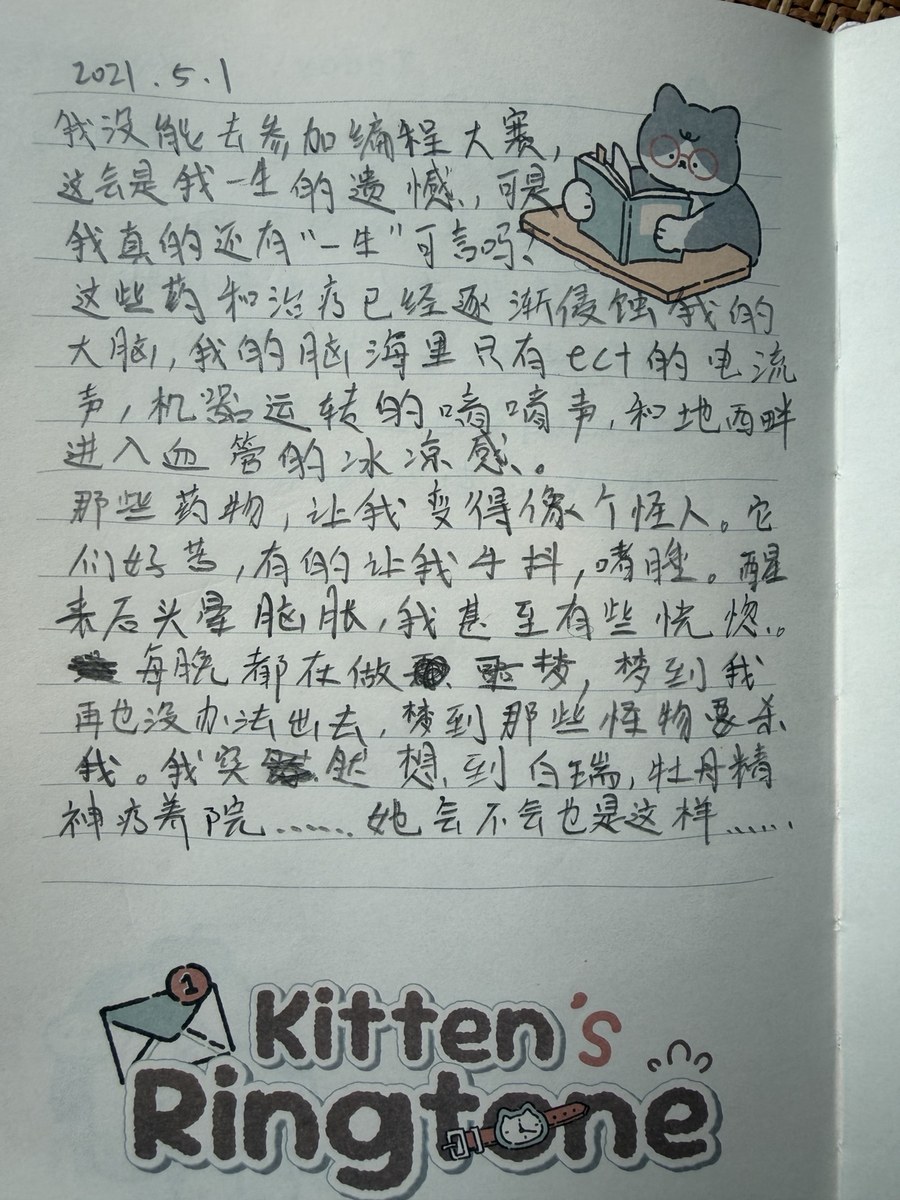 2021.5.1
我没能去参加编程大赛，
这会是我一生的遗憾，可是
我真的还有“一生”可言吗？
这些药和治疗已经逐渐侵蚀我的
大脑，我的脑海里只有ect的电流
声，机器运转的嘀嘀声，和地西畔
进入血管的冰凉感。
那些药物，让我变得像个怪人。它
们好苦，有的让我手抖，嗜睡。醒
来后头晕脑胀，我甚至有些恍惚。
每晚都在做噩梦，梦到我
再也没办法出去，梦到那些怪物要杀
我。我突然想到白瑞，牡丹精
神疗养院……她会不会也是这样……
1
Kitten's
Ringtone